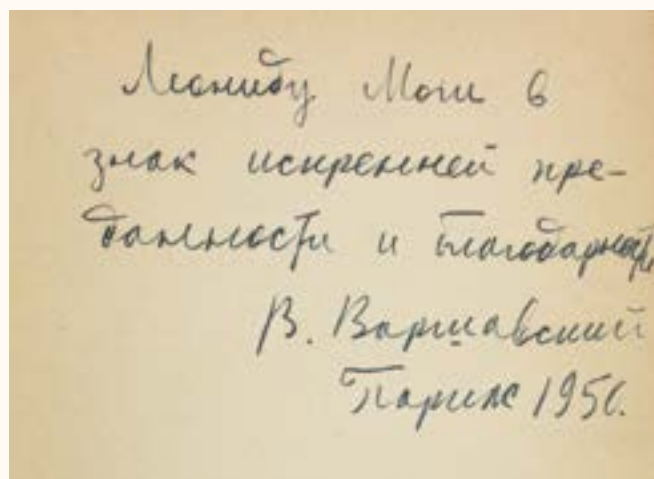 Леониду Моги в
знак искренней пре-
данности и благодарности
В. Варшавский
Париж 1950.